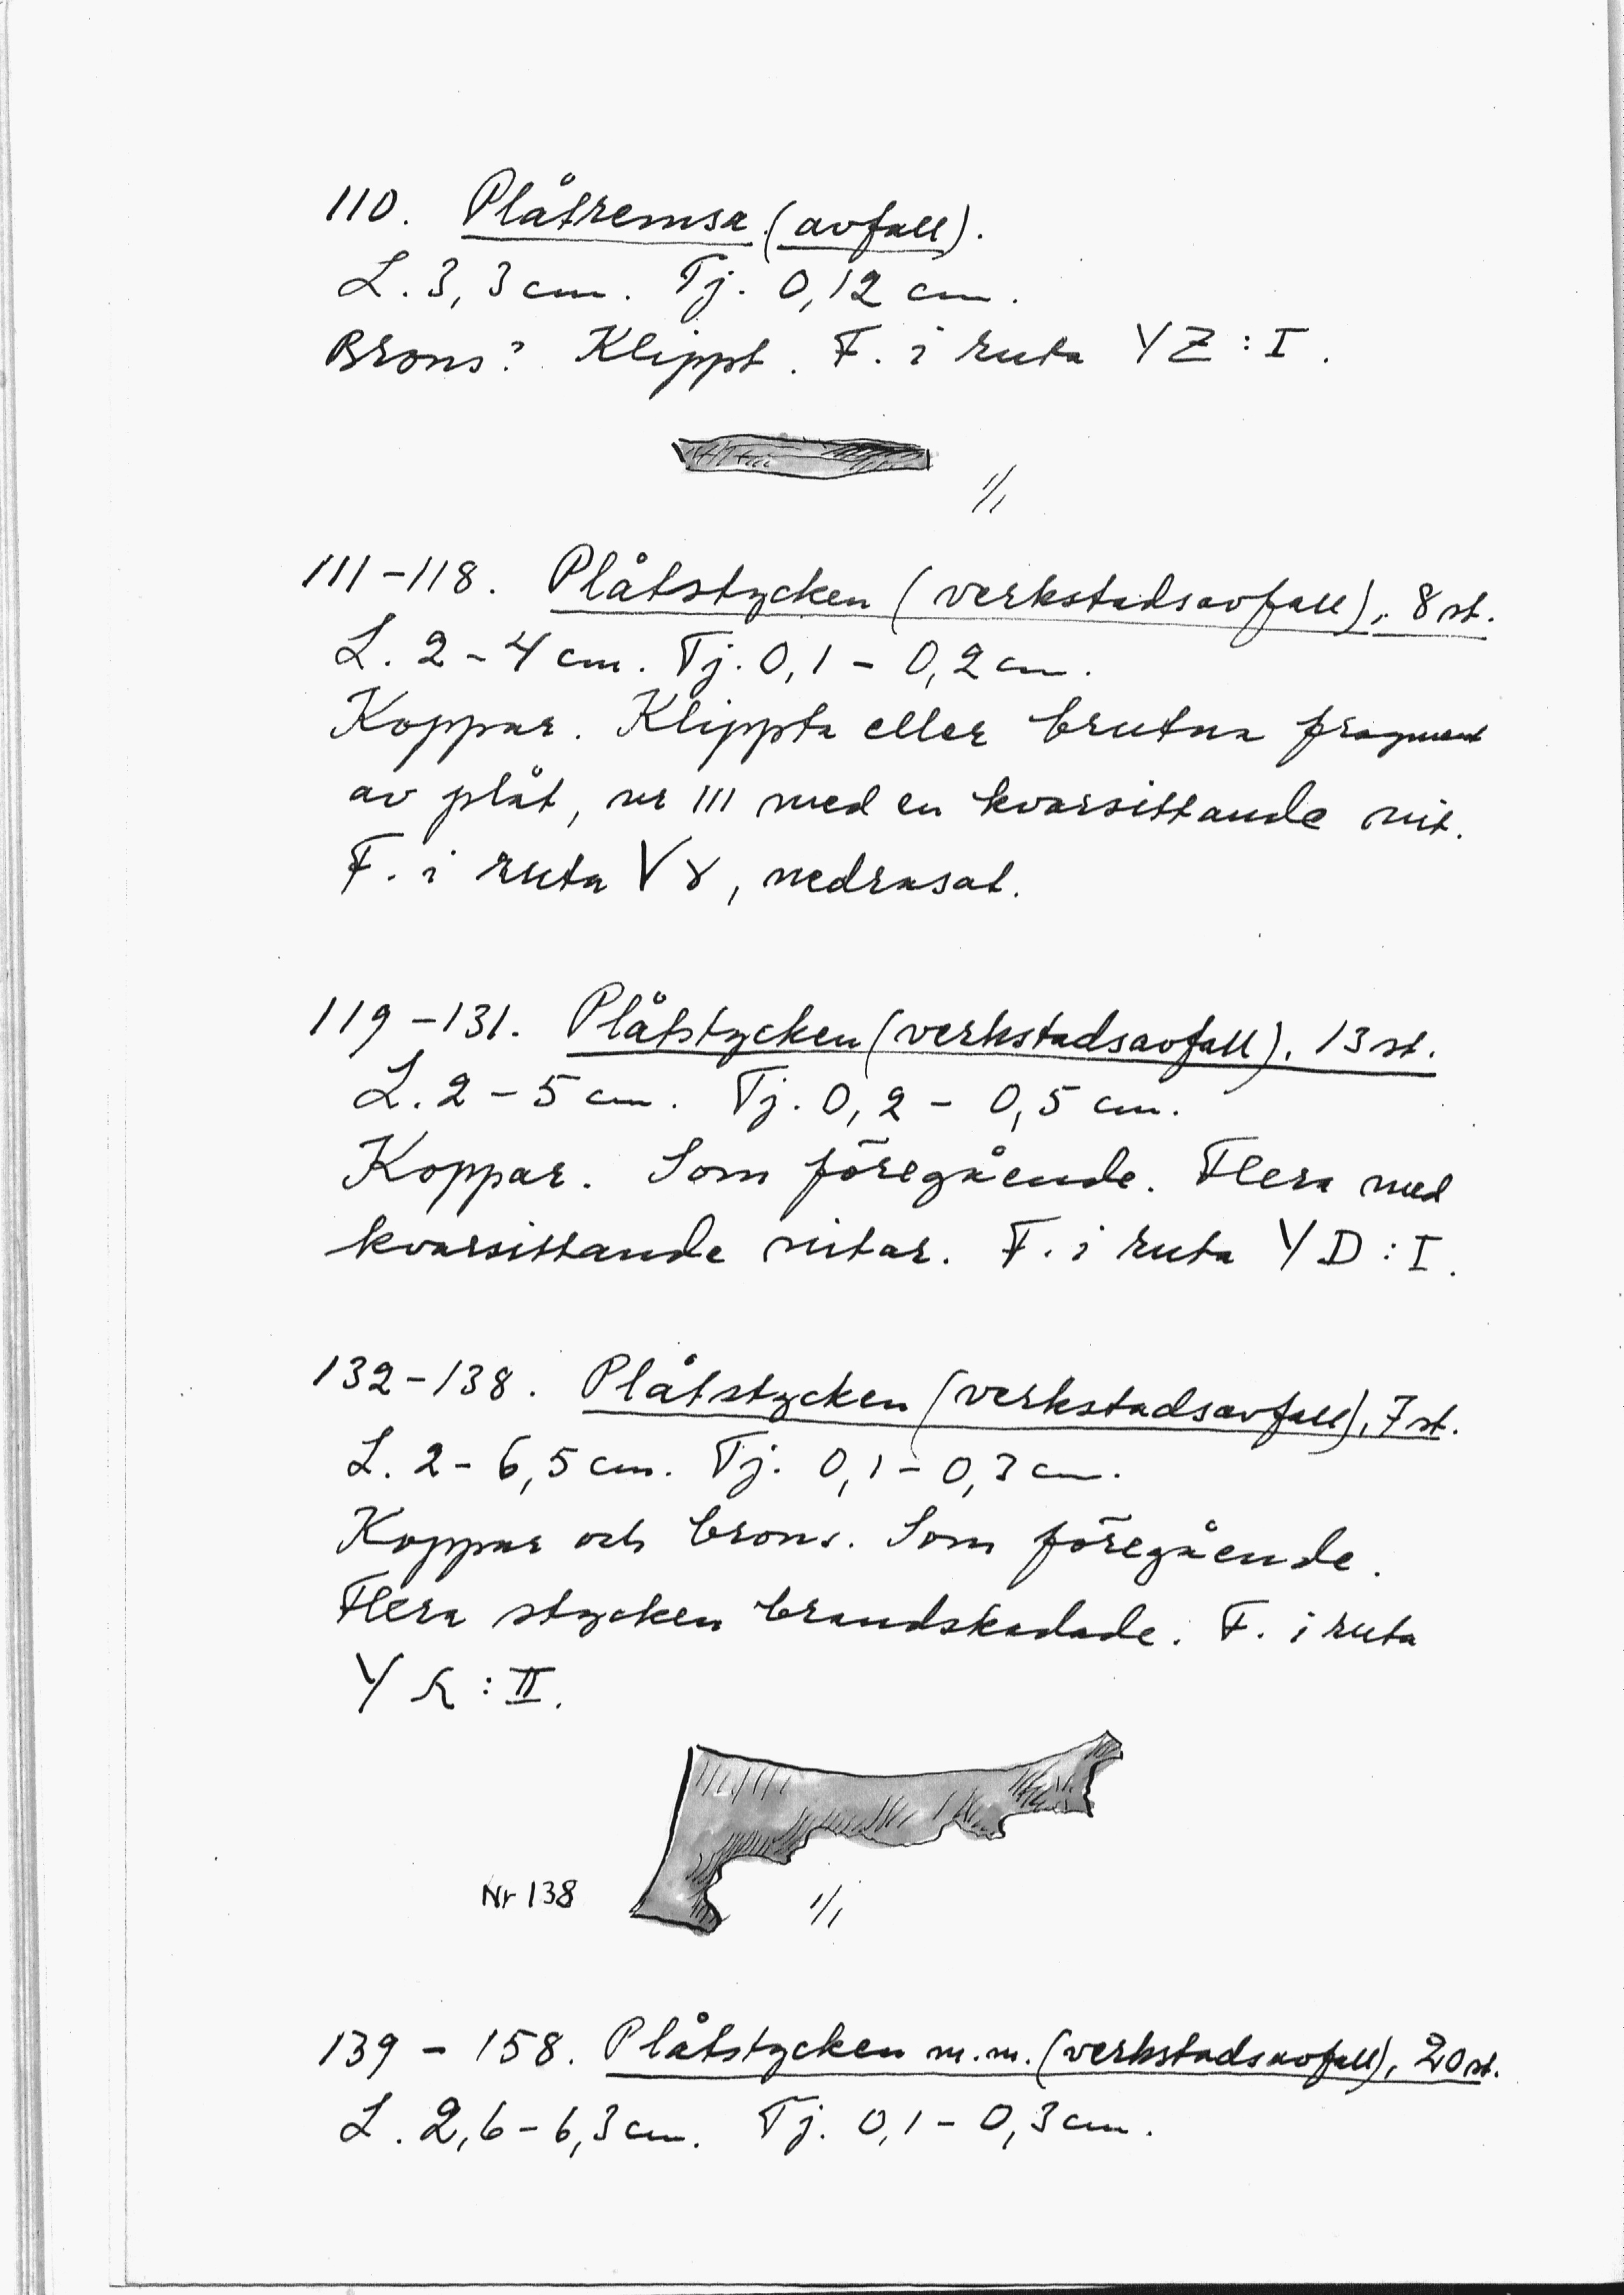 110. Plåtremsa (avfall).
L. 3,3 cm. Tj. 0,12 cm.
Brons? Klippt. F. i ruta YZ:I.
1/1
111-118. Plåtstycken (verkstadsavfall), 8 st.
L. 2-4 cm. Tj. 0,1-0,2 cm.
Koppar. Klippta eller brutna fragment
av plåt, nr 111 med en kvarsittande nit.
F. i ruta VX, nedrasat.
119-131. Plåtstycken (verkstadsavfall), 13 st.
L. 2-5 cm. Tj. 0,2-0,5 cm.
Koppar. Som föregående. Flera med
kvarsittande nitar. F. i ruta YD:I.
132-138. Plåtstycken (verkstadsavfall), 7 st.
L. 2-6,5 cm. Tj. 0,1-0,3 cm.
Koppar och brons. Som föregående.
Flera stycken brandskadade. F. i ruta
Y :II.
Nr 138 1/1
139-158. Plåtstycken m.m. (verkstadsavfall), 20 st.
L. 2,6-6,3 cm. Tj. 0,1-0,3 cm.